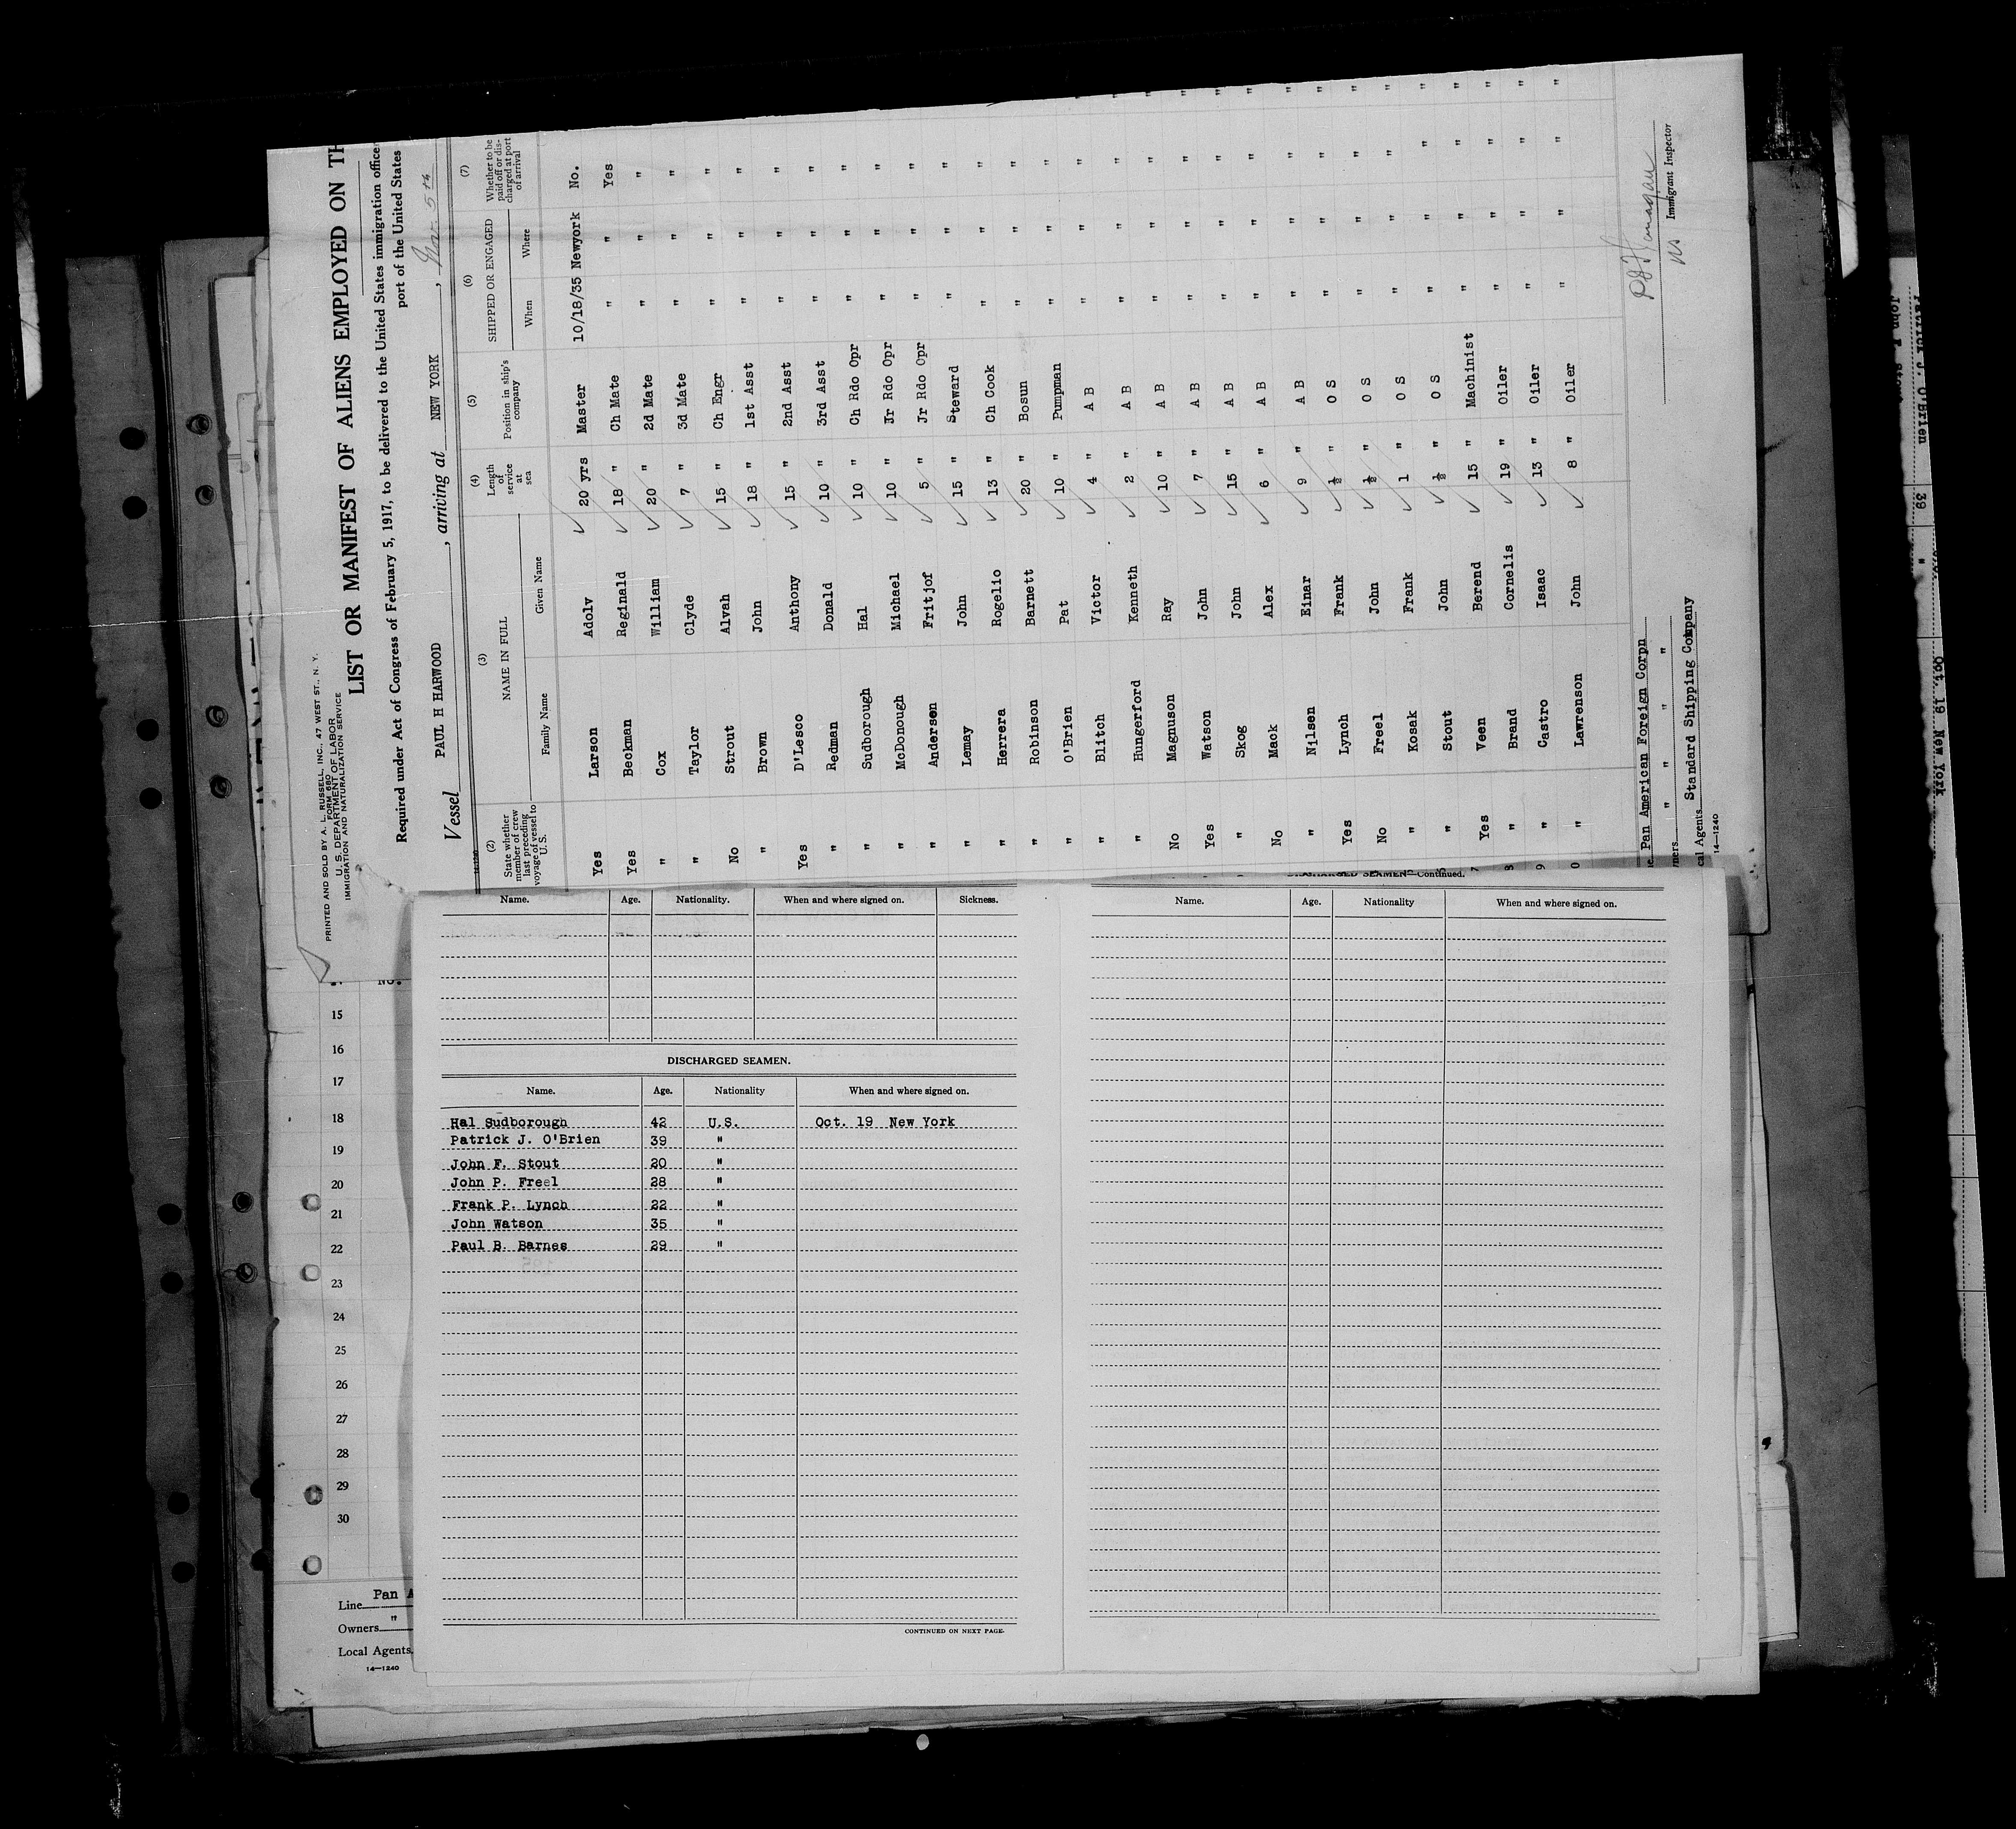 PRINTED AND SOLD BY A. L. RUSSELL, INC., 47 WEST ST., N. Y.
FORM 680
U. S. DEPARTMENT OF LABOR
IMMIGRATION AND NATURALIZATION SERVICE
LIST OR MANIFEST OF ALIENS EMPLOYED ON TH
Required under Act of Congress of February 5, 1917, to be delivered to the United States immigration officer
port of the United States
Vessel PAUL H HARWOOD, arriving at NEW YORK, Nov. 5th
(2) (3) (4) (5) (6) (7)
State whether member of crew last preceding voyage of vessel to U.S. NAME IN FULL Family Name Given Name Length of service at sea Position in ship's company SHIPPED OR ENGAGED When Where Whether to be paid off or discharged at port of arrival
Yes Larson Adolv 20 yrs Master 10/18/35 Newyork No.
Yes Beckman Reginald 18 " Ch Mate " " Yes
" Cox William 20 " 2d Mate " " "
" Taylor Clyde 7 " 3d Mate " " "
No Strout Alvah 15 " Ch Engr " " "
" Brown John 18 " 1st Asst " " "
Yes D'Lesco Anthony 15 " 2nd Asst " " "
" Redman Donald 10 " 3rd Asst " " "
" Sudborough Hal 10 " Ch Rdo Opr " " "
" McDonough Michael 10 " Jr Rdo Opr " " "
" Andersen Fritjof 5 " Jr Rdo Opr " " "
" Lemay John 15 " Steward " " "
" Herrera Rogelio 13 " Ch Cook " " "
" Robinson Barnett 20 " Bosun " " "
" O'Brien Pat 10 " Pumpman " " "
" Blitch Victor 4 " A B " " "
" Hungerford Kenneth 2 " A B " " "
No Magnuson Ray 10 " A B " " "
Yes Watson John 7 " A B " " "
" Skog John 15 " A B " " "
No Mack Alex 6 " A B " " "
" Nilsen Einar 9 " A B " " "
Yes Lynch Frank ½ " O S " " "
No Freel John ½ " O S " " "
" Kosak Frank 1 " O S " " "
" Stout John ½ " O S " " "
Yes Veen Berend 15 " Machinist " " "
" Brand Cornelis 19 " Oiler " " "
" Castro Isaac 13 " Oiler " " "
" Lawrenson John 8 " Oiler " " "
Pan American Foreign Corpn
" " " "
cal Agents Standard Shipping Company
14—1240
Immigrant Inspector
Name. Age. Nationality. When and where signed on. Sickness.
DISCHARGED SEAMEN.
Name. Age. Nationality When and where signed on.
Hal Sudborough 42 U.S. Oct. 19 New York
Patrick J. O'Brien 39 "
John F. Stout 20 "
John P. Freel 28 "
Frank P. Lynch 22 "
John Watson 35 "
Paul B. Barnes 29 "
CONTINUED ON NEXT PAGE.
DISCHARGED SEAMEN—Continued.
Name. Age. Nationality When and where signed on.
No.
15
16
17
18
19
20
21
22
23
24
25
26
27
28
29
30
Line Pan A
Owners "
Local Agents
14—1240
Patrick J. O'Brien 39 "
John F. Stout
Oct. 19 New York